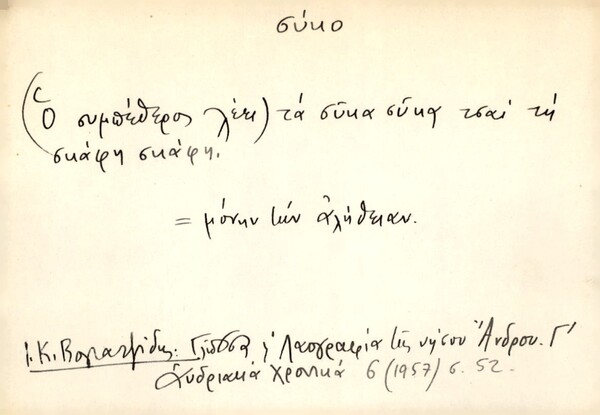 σύκο
(Ὁ συμπέθερος λέει) τά σῦκα σῦκα τσαί τή
σκάφη σκάφη.
= μόνην τήν ἀλήθειαν.
Ι. Κ. Βογιατζίδης: Γλῶσσα & Λαογραφία τῆς νήσου Ἄνδρου. Γ'
Ἀνδριακά Χρονικά 6 (1957) σ. 52.